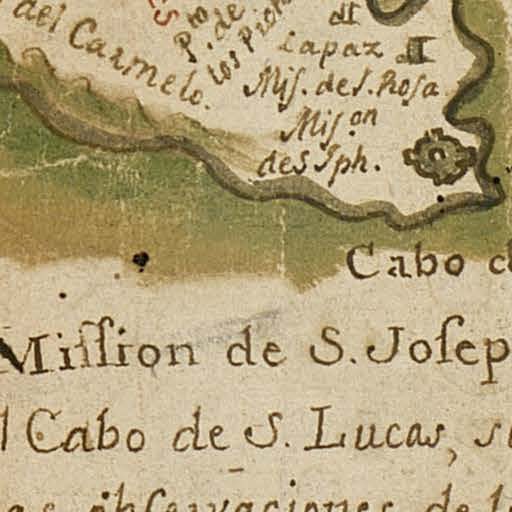 del Carmelo.
de
los
Lapaz
Mis. de S. Rosa.
Mis.on
de S Jph.
Cabo
Mission de S. Josep
Cabo de S. Lucas,
observaciones de